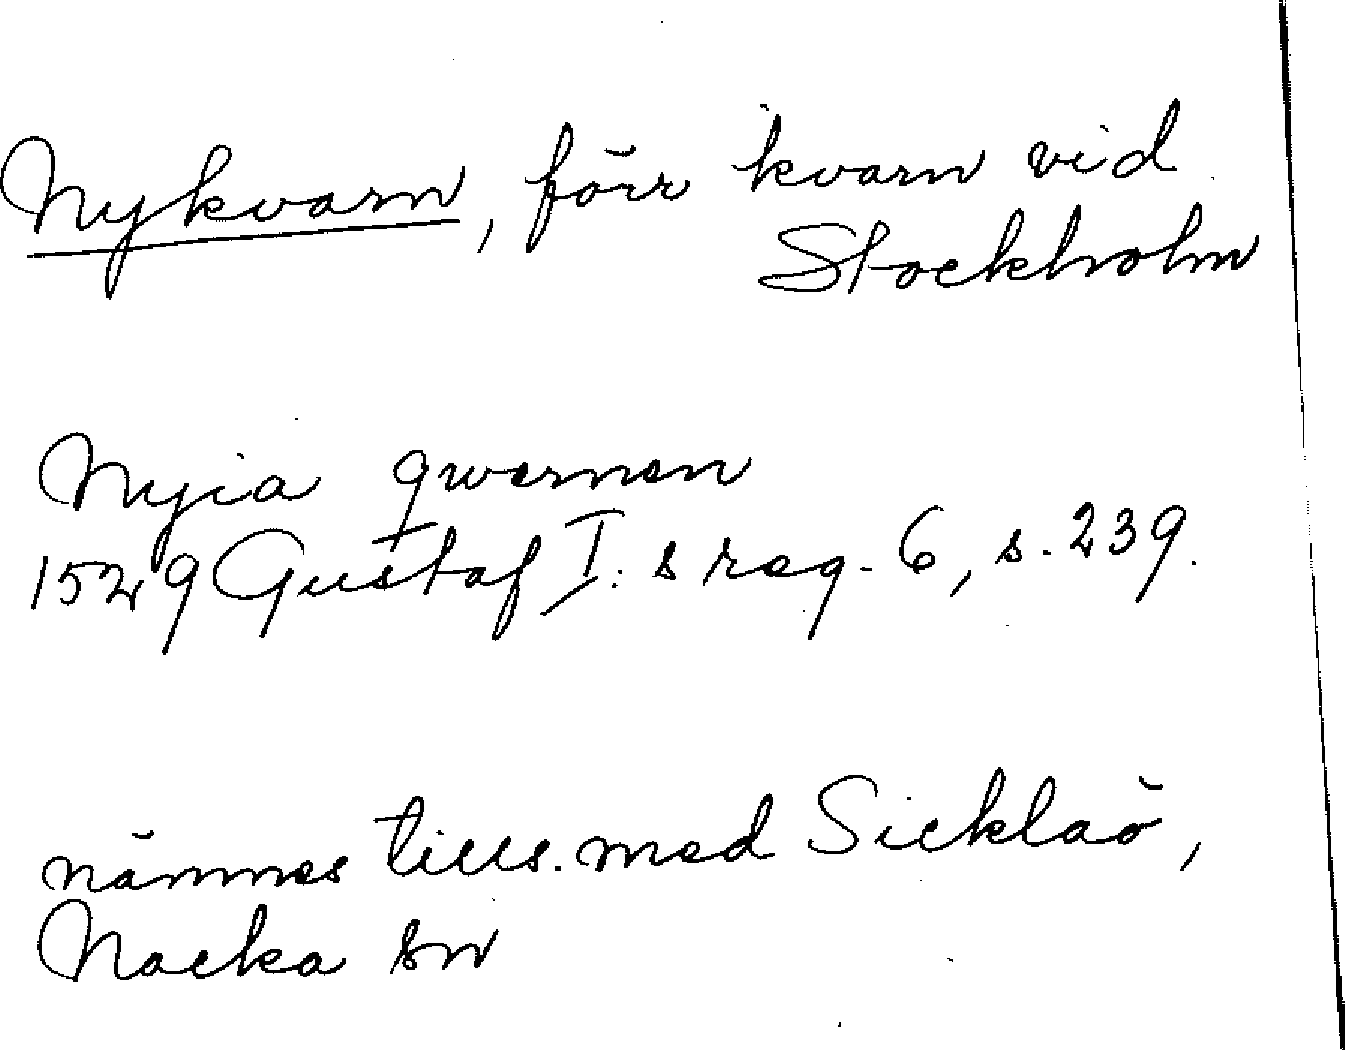 Nykvarn, förr kvarn vid
Stockholm
Nyia qwernen
1529 Gustaf I:s reg. 6, s. 239.
nämnes tills. med Sicklaö,
Nacka sn